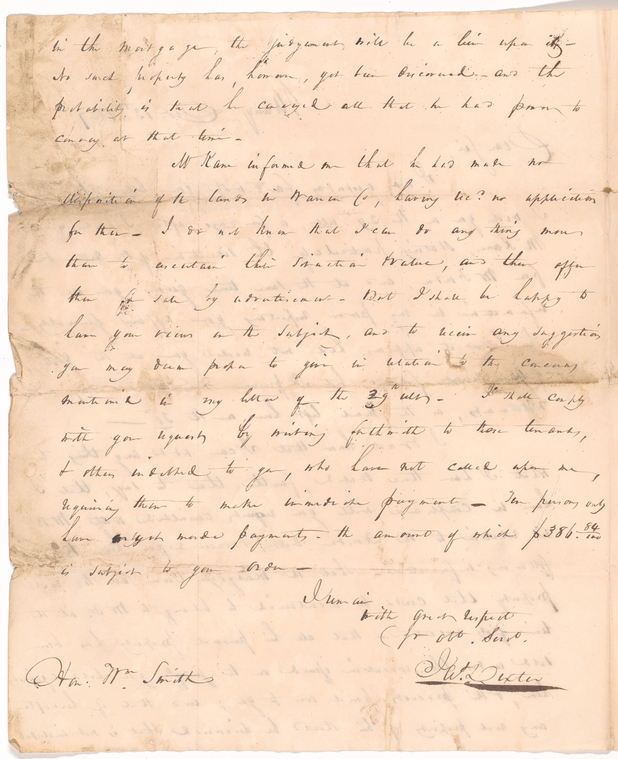 in the mortgage, the judgement, will be a lien upon it –
No such property has, however, yet been discovered – and the
probability is that he conveyed all that he had power to
convey at that time –
Mr Kane informed me that he had made no
disposition of the lands in Warren Co, having recd no application
for them – I do not know that I can do any thing more
than to ascertain their situation & value, and then offer
them for sale by advertisement – But I shall be happy to
have your views on the subject, and to receive any suggestions
you may deem proper to give in relation to the concerns
mentioned in my letter of the 29th ulto – I shall comply
with your requests by writing forthwith to those tenants,
& others indebted to you, who have not called upon me,
requiring them to make immediate payment – Ten persons only
have as yet made payments – the amount of which $386.84/100
is subject to your order –
I remain
with great respect
yr obt. Servt.
J W. Dexter
Hon. Wm Smith